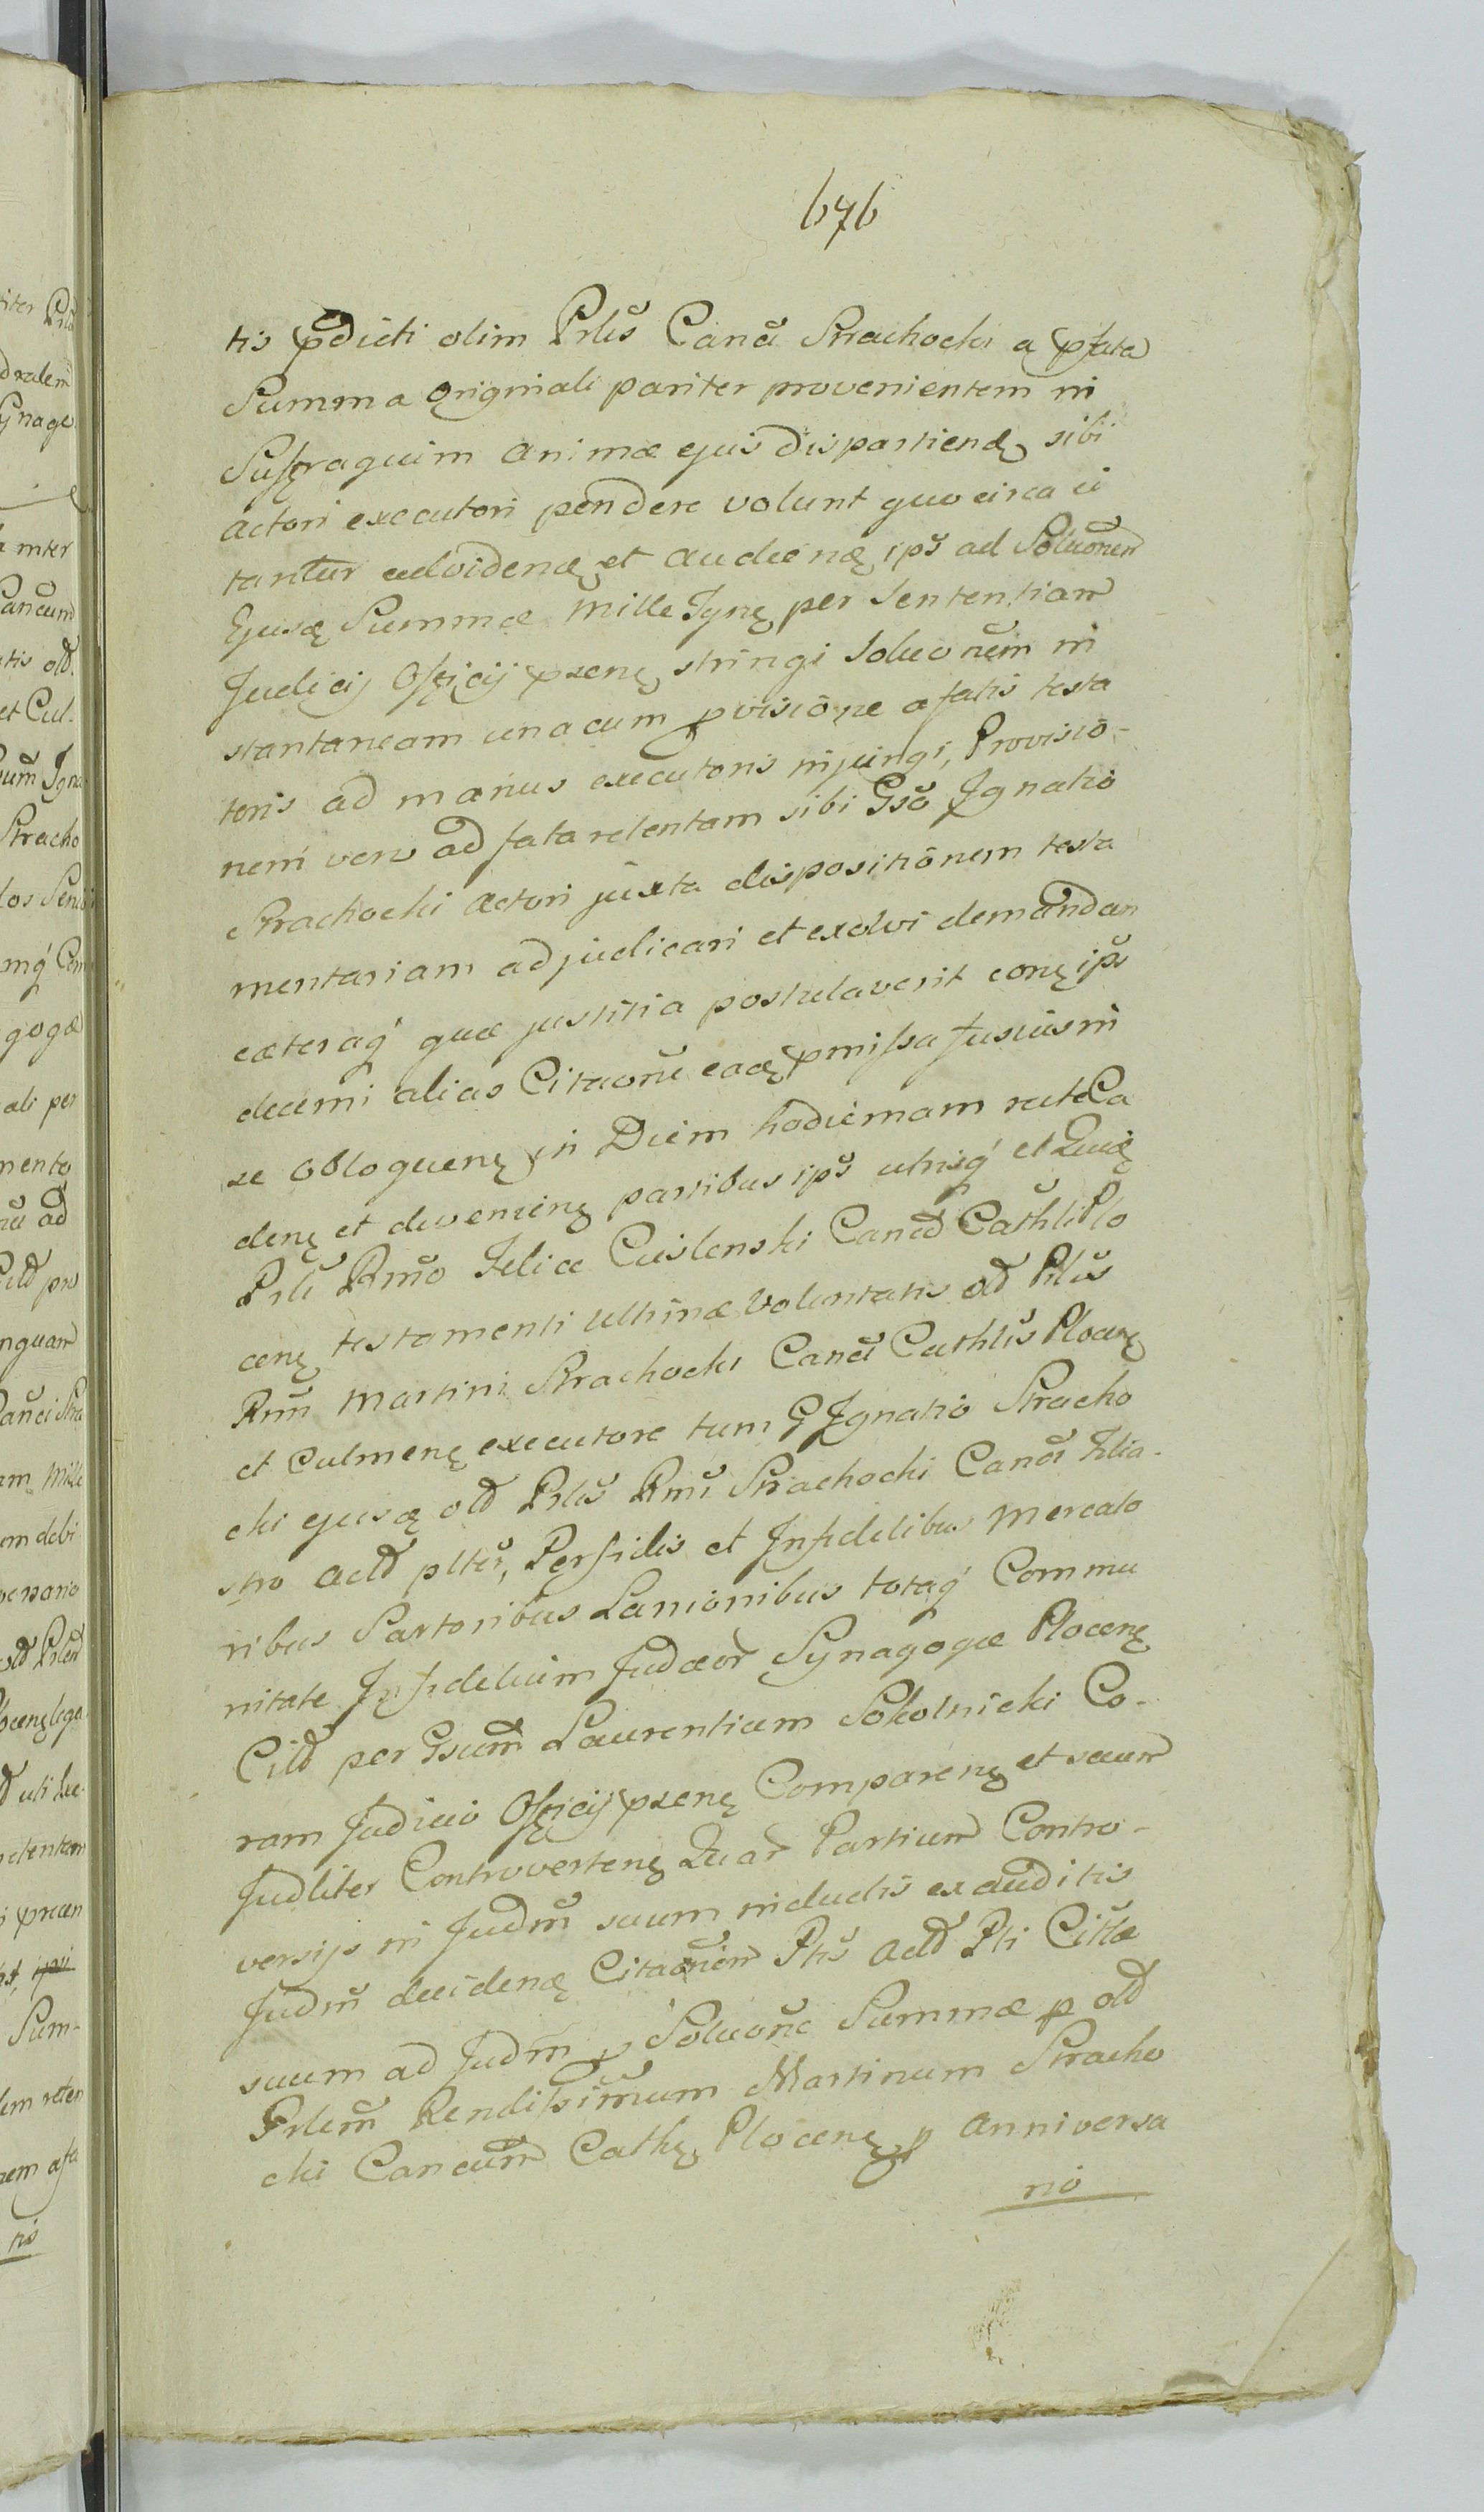 676
tis pdicti olim Prlis Canci Strachocki a pfata
Summa Originali pariter provenientem in
Suffragium animæ ejus dispartiendę sibi
actori executori pendere volunt quo circa ci
tantur ad videndę et audiendę ips ad Soluonem
Ejusdę Summæ Mille Tynf per Sententiam
Judicij Officij pñsenę stringi Soluonem in
stantaneam una cum pvisione a fatis testa
toris ad manus executoris injungi, Provisio-
nem vero ad fata retentam sibi Gso Ignatio
Strachocki actori juxta dispositionem testa
mentariam adjudicari et exolvi demandari
cæteraq quæ justitia postulaverit conę ips
decerni alias Citaone eadę pmissa fusius in
se obloquenę in Diem hodiernam rite Ca
denę et devenienę partibus ips utrisq et Quidę
Prli Rmo Felice Cieslenski Canco Cathli Plo
cenę testamenti Ultimæ Voluntatis old Prlis
Rmi Martini Strachocki Canci Cathlis Plocenę
et Culmenę executore tum G Ignatio Stracho
cki ejusdę old Prlis Rmi Strachocki Canci Filia-
stro Actd plter, Perfidis et Infidelibus Mercato
ribus Sartoribus Lanionibus totaq Commu
nitate Infidelium Judæor Synagogæ Plocenę
Citd per Gsum Laurentium Sokolnicki Co-
ram Judicio Officij pñsenę Comparenę et secum
Judliter Controvertenę Quar Partium Contro-
versijs in Judm suum inductis ex auditis
Judm decidendę Citaonem Ptis Actd Pti Cittæ
suum ad Judm p Soluone Summæ p old
Prlem Rendissimum Martinum Stracho
cki Cancum Cathę Plocenę p anniversa
rio